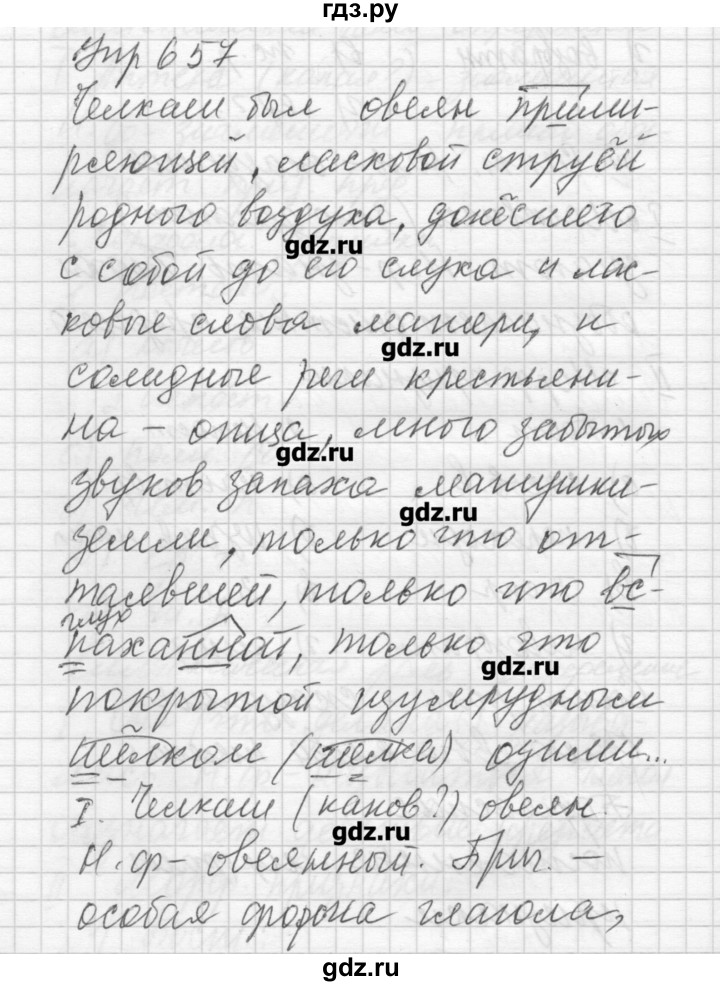 гдз.ру
Упр 657
Челкаш был овеян прими-
ряющей, ласковой струёй
родного воздуха, донёсшего
gdz.ru
с собой до его слуха и лас-
ковые слова матери, и
gdz.ru
солидные речи крестьяни-
на - отца, много забытых
gdz.ru
звуков запаха матушки-
gdz.ru
земли, только что от-
таявшей, только что вс-
глух
паханной, только что
gdz.ru
покрытой изумрудным
шёлком (шелка) озими...
I. Челкаш (каков?) овеян.
gdz.ru
Н.ф - овеянный. Прич. -
особая форма глагола,
gdz.ru